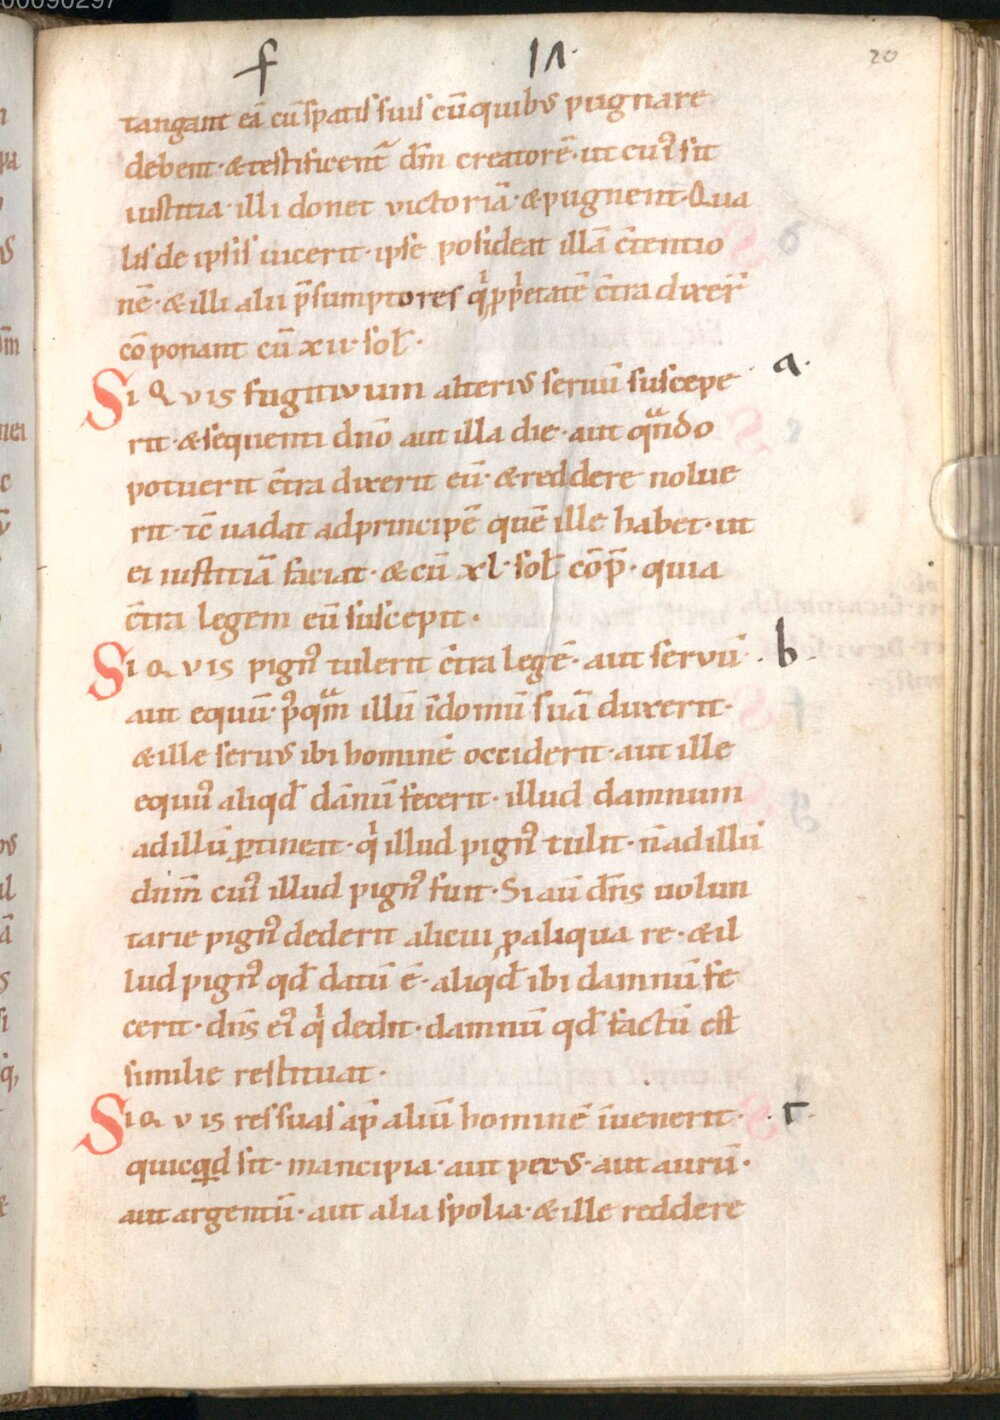 00090297
f 1n·
20
tangant eā cū spatiſ ſuiſ cū quibus pugnare
debent· & teſtificent᷑ dm̄ creatorē· ut cuꝰ ſit
iuſtitia· illi donet victoriā· & pugnent· Qua
liſ de ipſiſ uicerit· ipſe poſideat illā c̄tentio
nē· & illi alii p̄ſumptores qͥ ꝓp̄etatē c̄tra dixer̄
cō ponant cū xii· ſol̄·
Si Qvis fugitivum alterius ſeruū ſuſcepe
a·
rit· & ſequenti dn̄o aut illa die· aut qᷓndo
potuerit c̄tra dixerit eū· & reddere nolue
rit· tc̄ uadat ad principē quē ille habet· ut
ei iuſtitiā faciat· & cū xl· ſol̄ cō̄p̄· quia
c̄tra legem eū ſuſcepit·
Si Qvis pignꝰ tulerit c̄tra legē· aut ſervū
· b·
aut equū· pꝰqᷓm illū ī domū ſuā duxerit·
& ille ſerus ibi hominē occiderit· aut ille
equuꝰ aliqd̄ dānū fecerit· illud damnum
ad illū ꝑtineat· qͥ illud pignꝰ tulit· n̄ ad illū
dnīm̄ cuꝰ illud pignꝰ fuit· Si aū dn̄s uolun
tarie pignꝰ dederit alicui ꝓ aliqua re· & il
lud pignꝰ qd̄ datū ē· aliqd̄ ibi damnū fe
cerit· dn̄s eꝰ qͥ dedit· damnū qd̄ factū eſt
similit reſtituat·
Si Qvis res ſuaſ ap̄ aliū hominē īuenerit·
· c·
quicqd̄ ſit· mancipia· aut pecus· aut aurū·
aut argentū· aut alia ſpolia· & ille reddere